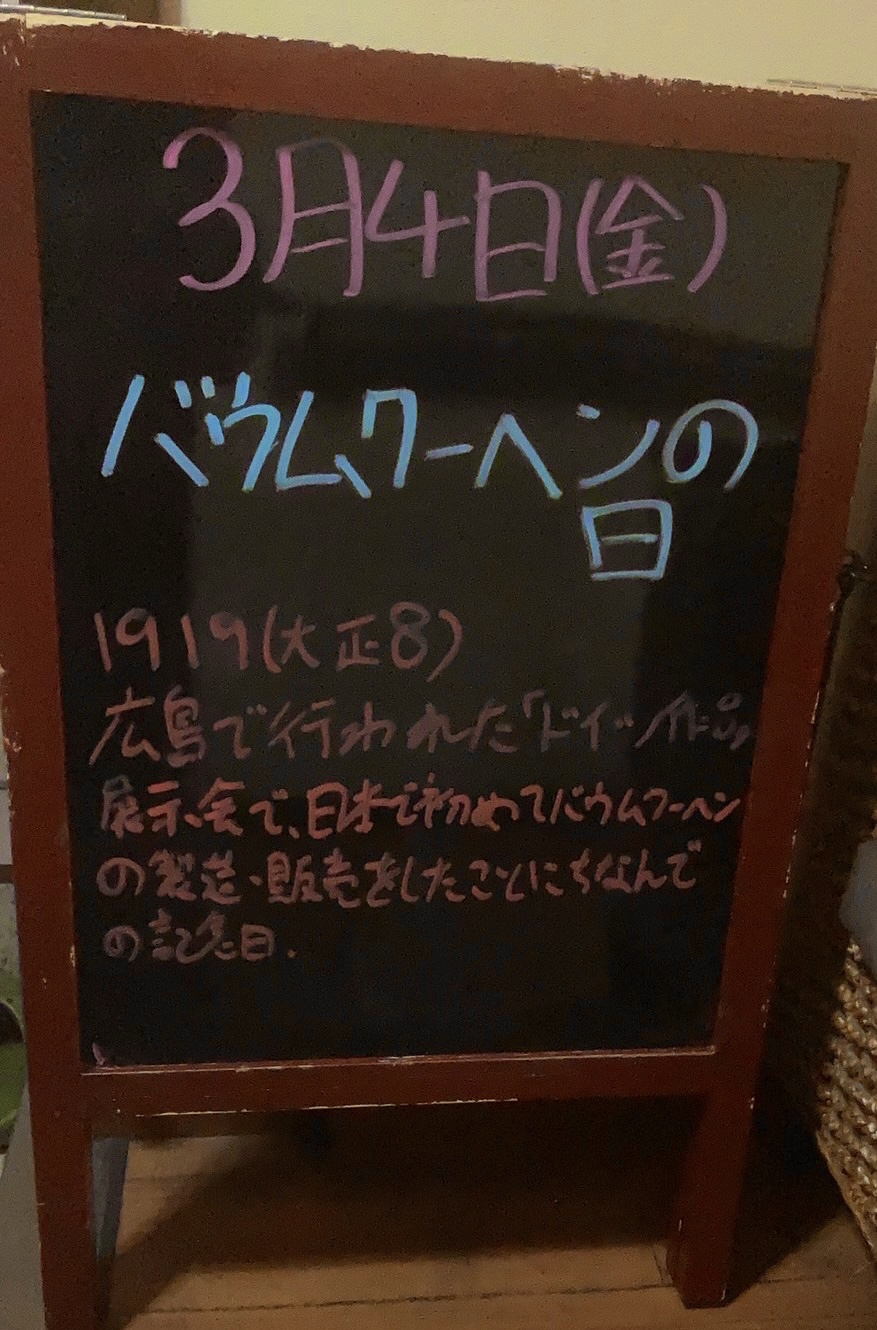 3月4日(金)
バウムクーヘンの
日
1919(大正8)
広島で行われた「ドイツ作品」
展示会で、日本で初めてバウムクーヘン
の製造・販売をしたことにちなんで
の記念日.